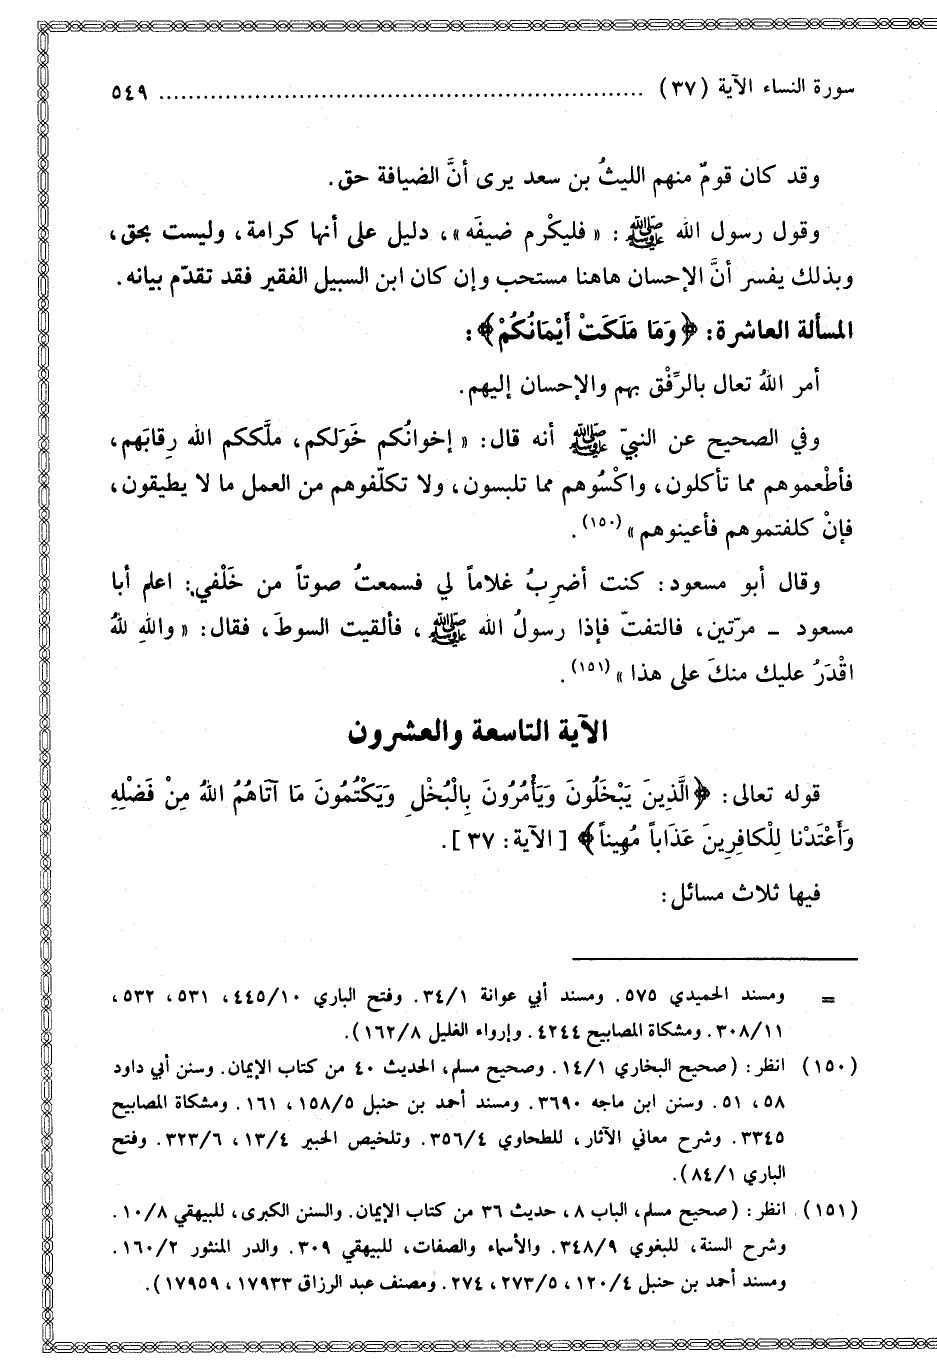 سورة النساء الآية (٣٧) ........................................................ ٥٤٩
وقد كان قومٌ منهم الليثُ بن سعد يرى أنَّ الضيافة حق.
وقول رسول الله ﷺ: «فليكْرم ضيفَه»، دليل على أنها كرامة، وليست بحق،
وبذلك يفسر أنَّ الإحسان هاهنا مستحب وإن كان ابن السبيل الفقير فقد تقدّم بيانه.
المسألة العاشرة: ﴿وَمَا مَلَكَتْ أَيْمَانُكُمْ﴾:
أمر اللهُ تعال بالرِّفْق بهم والإحسان إليهم.
وفي الصحيح عن النبيّ ﷺ أنه قال: «إخوانُكم خَوَلكم، ملَّككم الله رِقابَهم،
فأطْعموهم مما تأكلون، واكْسُوهم مما تلبسون، ولا تكلّفوهم من العمل ما لا يطيقون،
فإنْ كلفتموهم فأعينوهم» (١٥٠).
وقال أبو مسعود: كنت أضرِبُ غلاماً لي فسمعتُ صوتاً من خَلْفي: اعلم أبا
مسعود - مرّتين، فالتفتّ فإذا رسولُ الله ﷺ، فألقيت السوطَ، فقال: «واللهِ للهُ
اقْدَرُ عليك منكَ على هذا» (١٥١).
الآية التاسعة والعشرون
قوله تعالى: ﴿الَّذِينَ يَبْخَلُونَ وَيَأْمُرُونَ بِالْبُخْلِ وَيَكْتُمُونَ مَا آتَاهُمُ اللهُ مِنْ فَضْلِهِ
وَأَعْتَدْنا لِلْكافِرِينَ عَذَاباً مُهِيناً﴾ [الآية: ٣٧].
فيها ثلاث مسائل:
= ومسند الحميدي ٥٧٥. ومسند أبي عوانة ٣٤/١. وفتح الباري ٤٤٥/١٠، ٥٣١، ٥٣٢،
٣٠٨/١١. ومشكاة المصابيح ٤٢٤٤. وإرواء الغليل ١٦٢/٨).
(١٥٠) انظر: (صحيح البخاري ١٤/١. وصحيح مسلم، الحديث ٤٠ من كتاب الإيمان. وسنن أبي داود
٥٨، ٥١. وسنن ابن ماجه ٣٦٩٠. ومسند أحمد بن حنبل ١٥٨/٥، ١٦١. ومشكاة المصابيح
٣٣٤٥. وشرح معاني الآثار، للطحاوي ٣٥٦/٤. وتلخيص الحبير ١٣/٤، ٣٢٣/٦. وفتح
الباري ٨٤/١).
(١٥١) انظر: (صحيح مسلم، الباب ٨، حديث ٣٦ من كتاب الإيمان. والسنن الكبرى، للبيهقي ١٠/٨.
وشرح السنة، للبغوي ٣٤٨/٩. والأسماء والصفات، للبيهقي ٣٠٩. والدر المنثور ١٦٠/٢.
ومسند أحمد بن حنبل ١٢٠/٤، ٢٧٣/٥، ٢٧٤. ومصنف عبد الرزاق ١٧٩٣٣، ١٧٩٥٩).